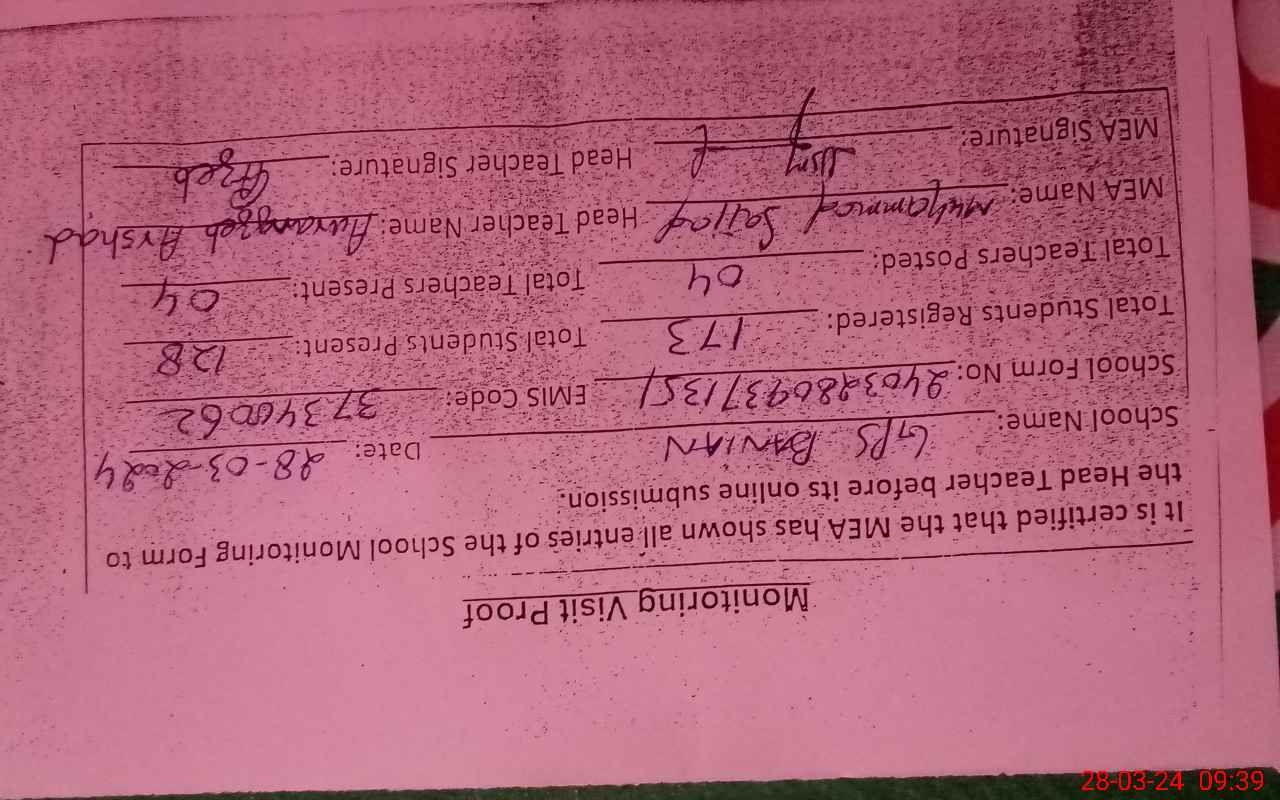 Monitoring Visit Proof
It is certified that the MEA has shown all entries of the School Monitoring Form to
the Head Teacher before its online submission.
School Name: GPS BANIAN Date: 28-03-2024
School Form No: 24032809371351 EMIS Code: 37340062
Total Students Registered: 173 Total Students Present: 128
Total Teachers Posted: 04 Total Teachers Present: 04
MEA Name: Muhammad Sajjad Head Teacher Name: Aurangzeb Arshad
MEA Signature: Head Teacher Signature: Azeb
28-03-24 09:39